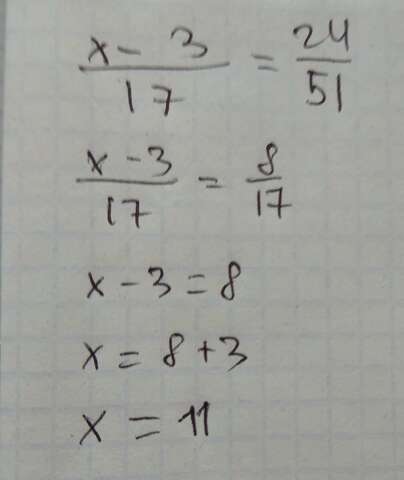 x - 3 / 17 = 24 / 51
x - 3 / 17 = 8 / 17
x - 3 = 8
x = 8 + 3
x = 11